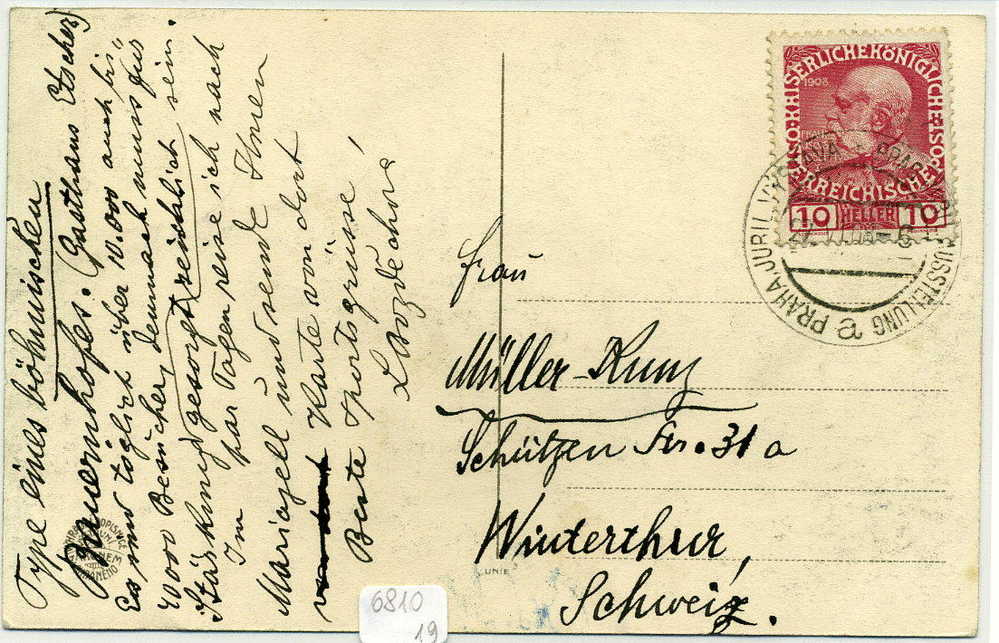 Type eines böhmischen
Bauernhofes. (Gasthaus Etscher)
Es sind täglich über 10.000 auch bis
40000 Besucher, demnach muss für
Stärkung gesorgt reichlich sein.
Im par Tagen reise ich nach
Mariazell und sende Ihnen
Karte von dort
Beste Sportsgrüsse
Frau
Müller-Kunz
Schützen Str. 31 a
Winterthur,
Schweiz.
KAISERLICHE KÖNIGLICHE ÖSTERREICHISCHE POST
1908
10 HELLER 10
PRAHA, JUBIL. VÝSTAVA
PRAG AUSSTELLUNG
a
UNIE
6810
19